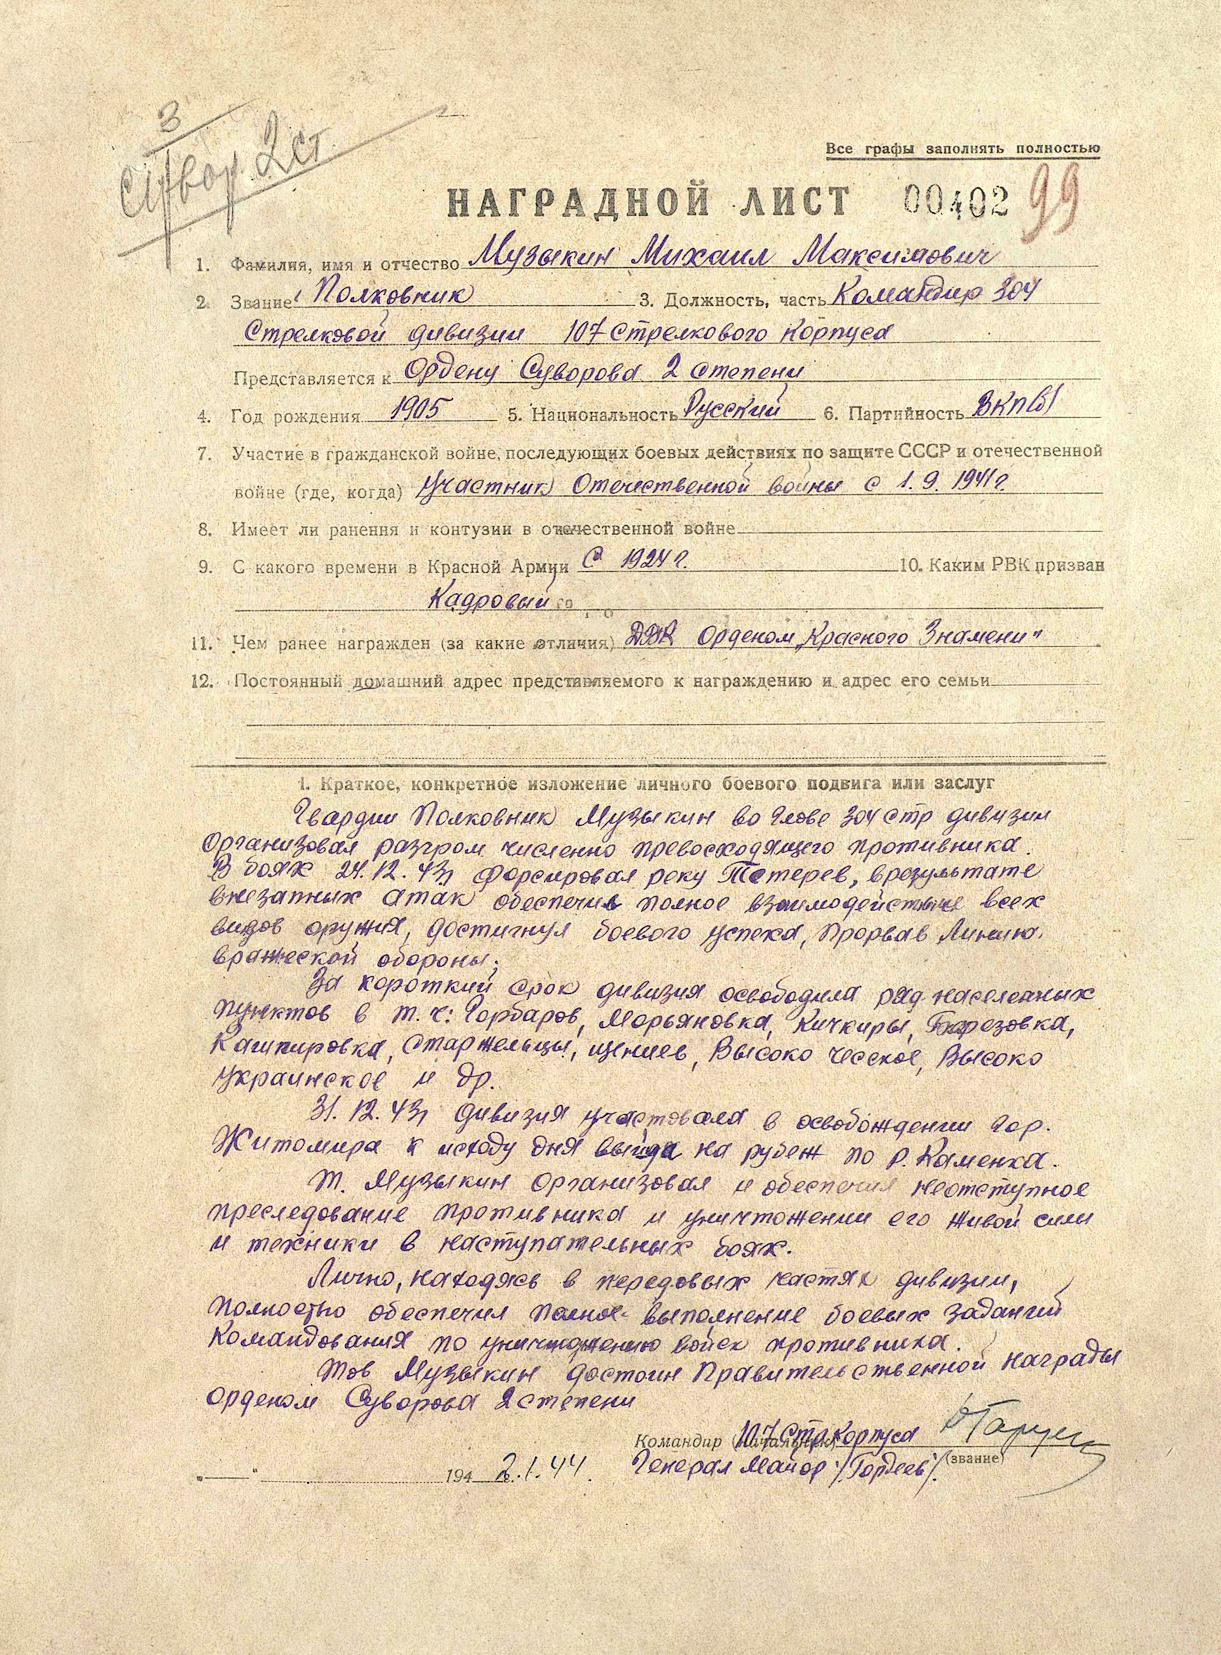 3
Сувор. 2 ст
Все графы заполнять полностью
НАГРАДНОЙ ЛИСТ 00402 99
1. Фамилия, имя и отчество Музыкин Михаил Максимович
2. Звание Полковник 3. Должность, часть Командир 304
Стрелковой дивизии 107 Стрелкового Корпуса
Представляется к Ордену Суворова 2 степени
4. Год рождения 1905 5. Национальность Русский 6. Партийность ВКП(б)
7. Участие в гражданской войне, последующих боевых действиях по защите СССР и отечественной
войне (где, когда) Участник Отечественной войны с 1.9.1941г.
8. Имеет ли ранения и контузии в отечественной войне
9. С какого времени в Красной Армии С 1924 г. 10. Каким РВК призван
Кадровый
11. Чем ранее награжден (за какие отличия) Орденом „Красного Знамени"
12. Постоянный домашний адрес представляемого к награждению и адрес его семьи
1. Краткое, конкретное изложение личного боевого подвига или заслуг
Гвардии Полковник Музыкин во главе 304 стр дивизии
организовал разгром численно превосходящего противника.
В боях 24.12.43г форсировал реку Тетерев, врезультате
внезапных атак обеспечив полное взаимодействие всех
видов оружия, достигнул боевого успеха, прорвав линию
вражеской обороны;
За короткий срок дивизия освободила ряд населенных
пунктов в т.ч: Горбаров, Марьяновка, Кичкиры, Березовка,
Кашпировка, Старжельцы, щениев, Высоко чесское, Высоко
украинское и др.
31.12.43г дивизия участвовала в освобождении гор.
Житомира к исходу дня выйдя на рубеж по р. Каменка.
Т. Музыкин организовал и обеспечил неотступное
преследование противника и уничтожении его живой силы
и техники в наступательных боях.
Лично, находясь в передовых частях дивизии,
полностю обеспечил полное выполнение боевых заданий
Командования по уничтожению войск противника.
Тов Музыкин достоин Правительственной награды
орденом Суворова 2 степени
Командир (начальник) 107 Стр Корпуса
Генерал Майор /Гордеев/. (звание)
„ — " 194 2.1.44.